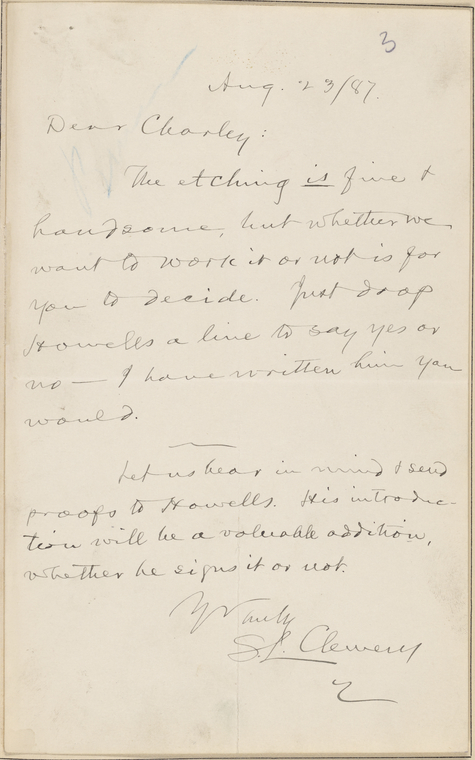 3
Aug. 23/87.
Dear Charley:
The etching is fine &
handsome, but whether we
want to work it or not is for
you to decide. Just drop
Howells a line to say yes or
no — I have written him you
would.
Let us bear in mind & send
proofs to Howells. His introduc-
tion will be a valuable addition,
whether he signs it or not.
Yr Truly
S. L. Clemens